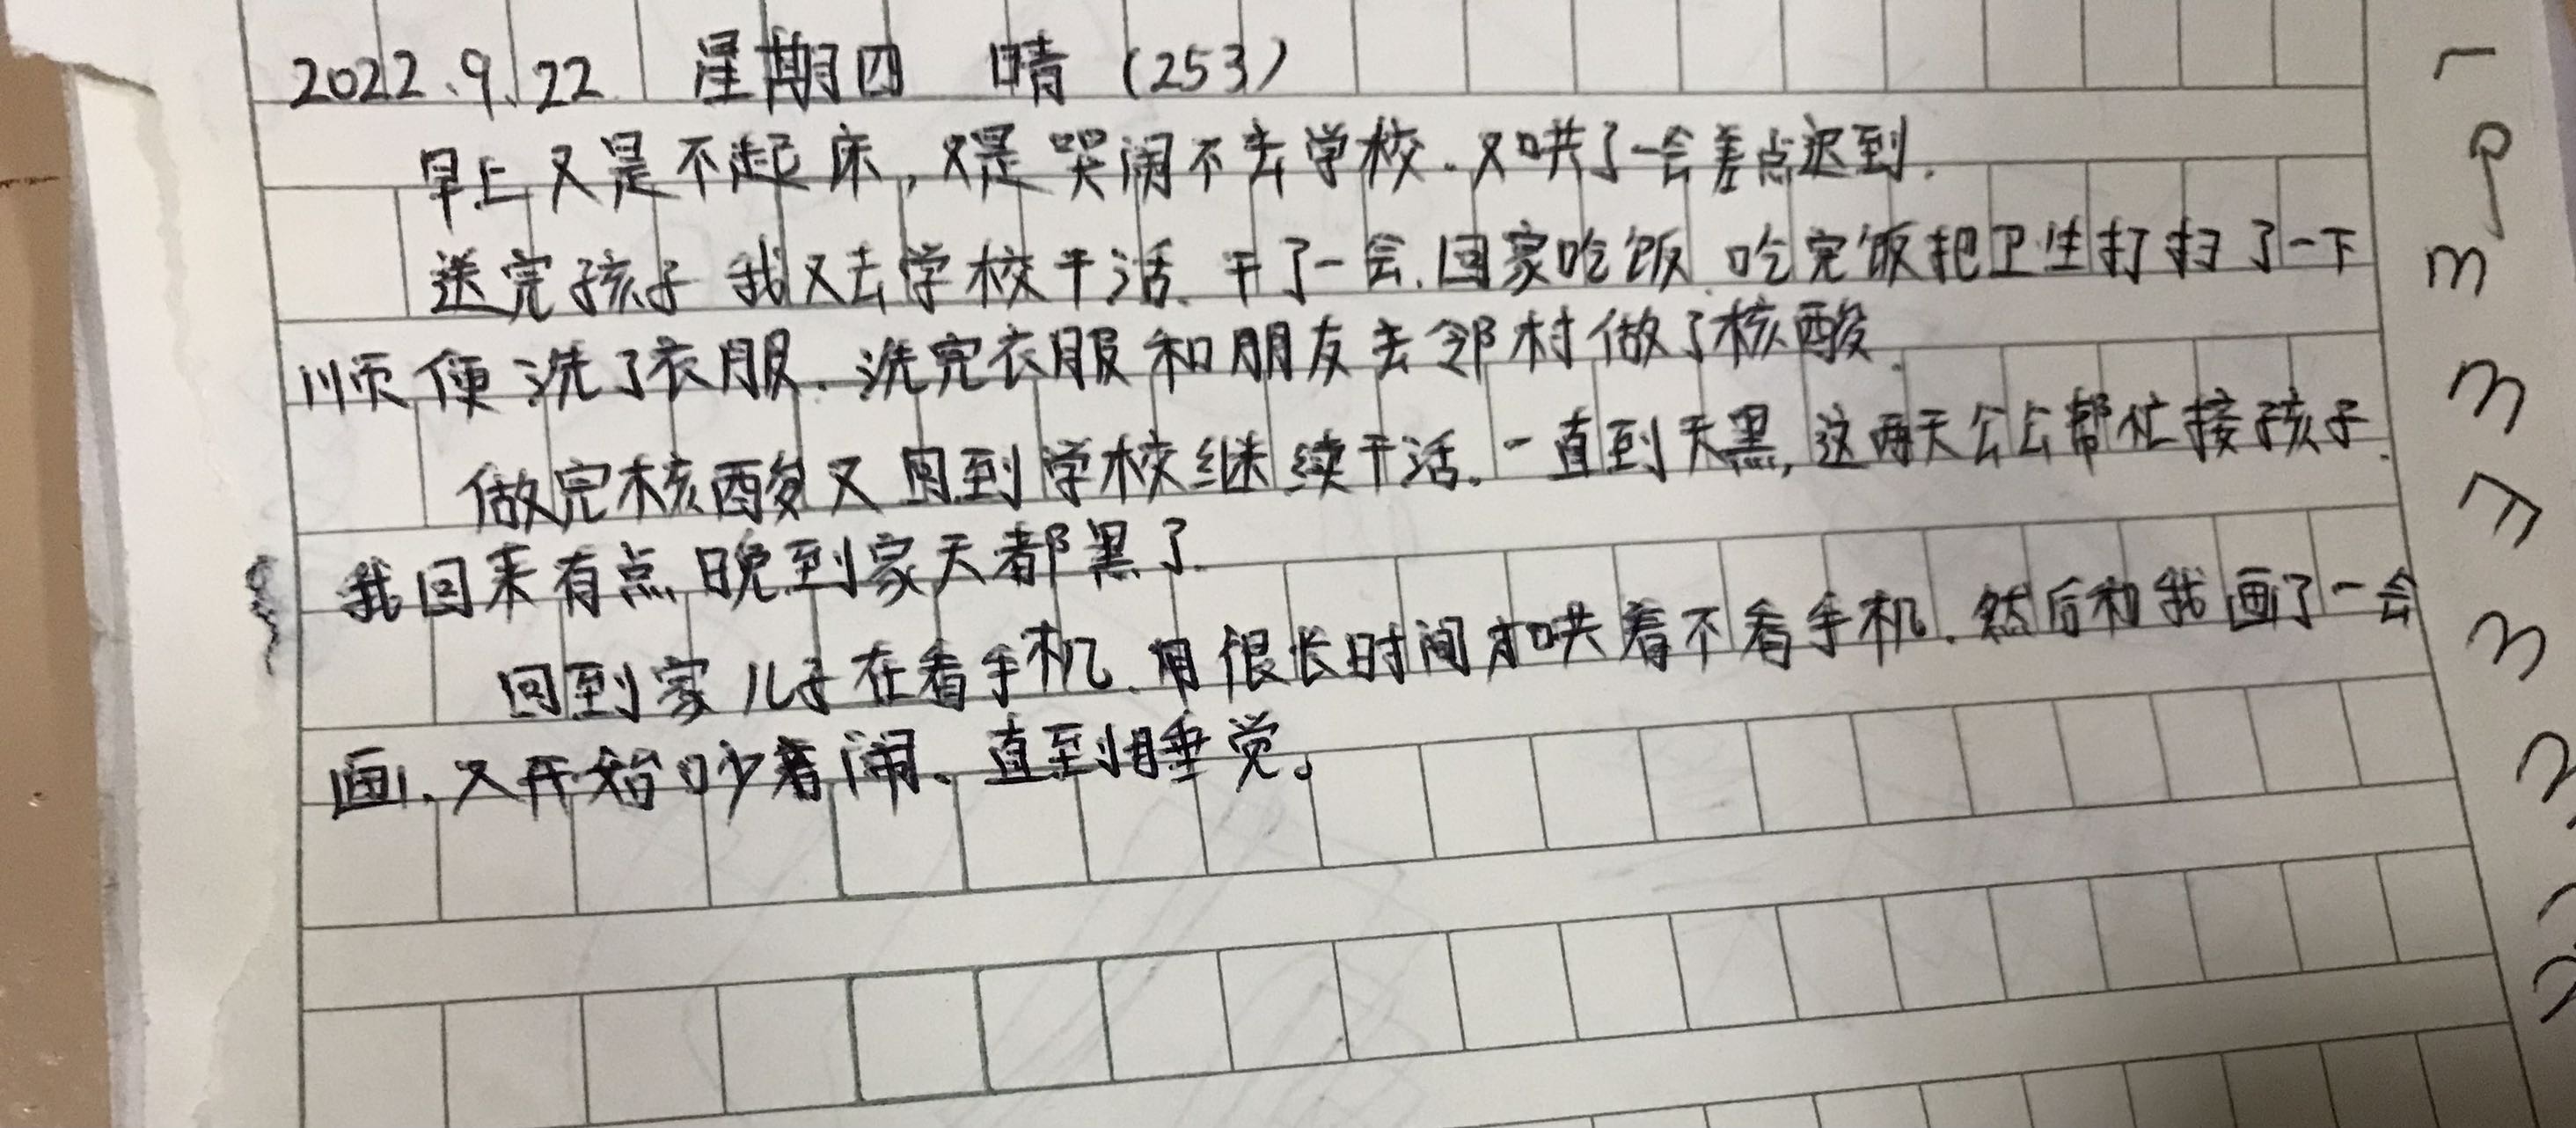 2022.9.22 星期四 晴 (253)
早上又是不起床,又是哭闹不去学校.又哄了一会差点迟到.
送完孩子我又去学校干活.干了一会.回家吃饭.吃完饭把卫生打扫了一下
顺便洗了衣服.洗完衣服和朋友去邻村做了核酸.
做完核酸又回到学校继续干活.一直到天黑,这两天公公帮忙接孩子.
我回来有点晚到家天都黑了.
回到家儿子在看手机.用很长时间才哄着不看手机.然后和我画了一会
画.又开始吵着闹.直到睡觉。